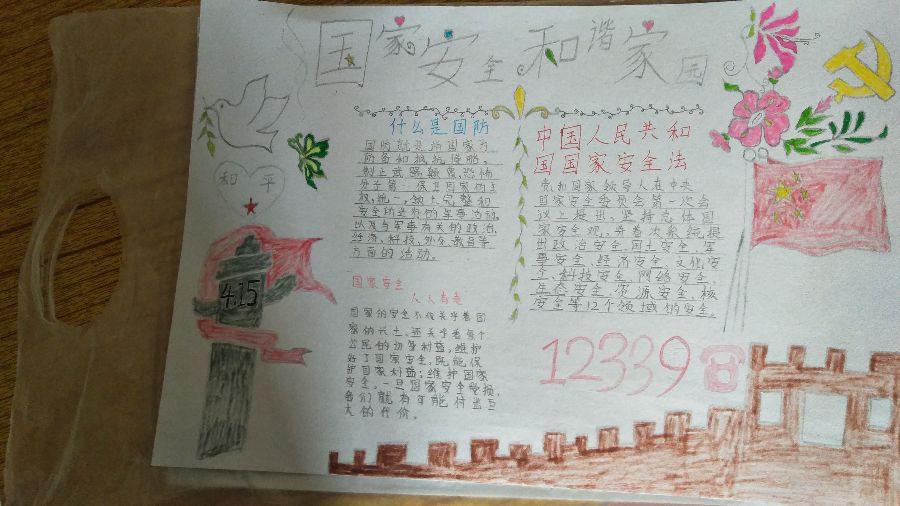 国家安全和谐家园
什么是国防
国防就是指国家为
防备和抵抗侵略,
制止武装颠覆,恐怖
分子等,保卫国家的主
权,统一,领土完整和
安全所进行的军事活动,
以及与军事有关的政治,
经济,科技,外交,教育等
方面的活动。
国家安全
人人有责
国家的安全不仅关乎着国
家的兴亡,还关乎着每个
公民的切身利益,维护
好了国家安全,既能保
护国家利益;维护国家
安全,一旦国家安全受损,
我们就有可能付出巨
大的代价。
中国人民共和
国国家安全法
党和国家领导人在中央
国家安全委员会第一次会
议上提出,坚持总体国
家安全观,并首次系统提
出政治安全,国土安全,军
事安全,经济安全,文化安
全,科技安全,网络安全,
生态安全,资源安全,核
安全等12个领域的安全。
12339
和平
4.15